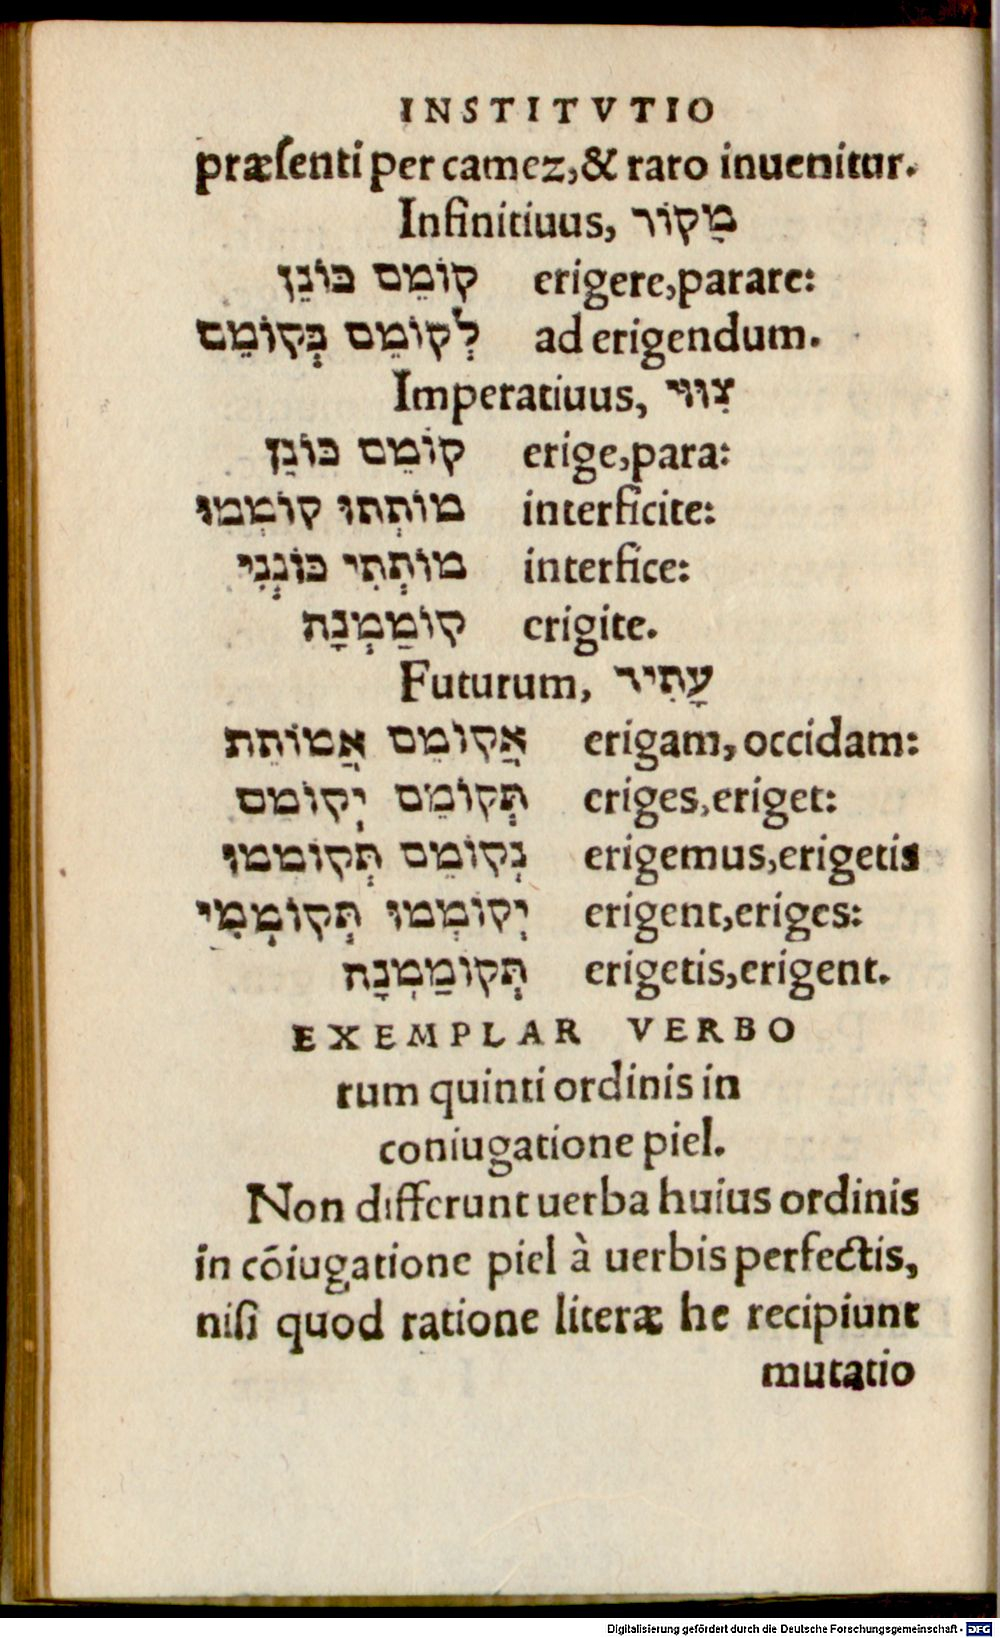 INSTITVTIO
præsenti per camez,& raro inuenitur.
Infinitiuus, מָקוֹר
קוֹמֵם כּוֹנֵן erigere,parare:
לְקוֹמֵם בְּקוֹמֵם ad erigendum.
Imperatiuus, צִוּוּי
קוֹמֵם כּוֹנֵן erige,para:
מוֹתְתוּ קוֹמְמוּ interficite:
מוֹתְתִי כּוֹנְנִי interfice:
קוֹמַמְנָה erigite.
Futurum, עָתִיד
אֲקוֹמֵם אֲמוֹתֵת erigam, occidam:
תְּקוֹמֵם יְקוֹמֵם eriges,eriget:
נְקוֹמֵם תְּקוֹמְמוּ erigemus,erigetis
יְקוֹמְמוּ תְּקוֹמְמִי erigent,eriges:
תְּקוֹמַמְנָה erigetis,erigent.
EXEMPLAR VERBO
rum quinti ordinis in
coniugatione piel.
Non differunt uerba huius ordinis
in cōiugatione piel à uerbis perfectis,
nisi quod ratione literæ he recipiunt
mutatio
Digitalisierung gefördert durch die Deutsche Forschungsgemeinschaft - DFG